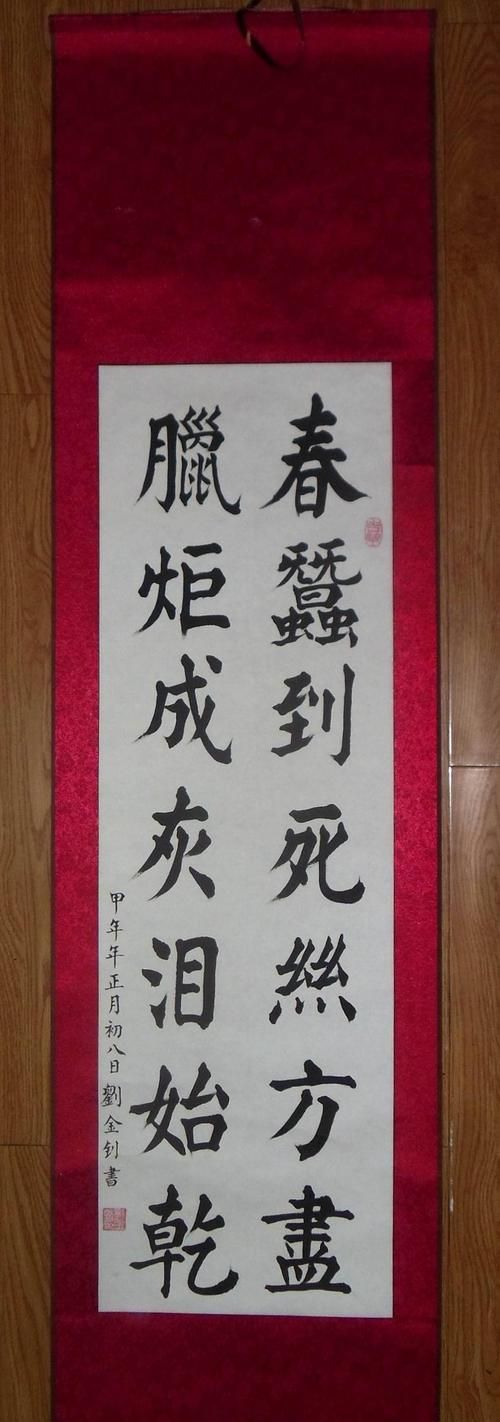 春蠶到死絲方盡
臘炬成灰泪始乾
甲年年正月初八日劉金釗書